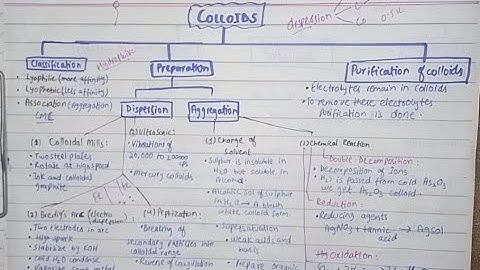 COLLOIDS
dispersion
Classification
Hydrophilic
Lyophilic (more affinity)
Lyophobic (less affinity)
Association (Aggregation)
CMC
Preparation
Purification of colloids
Electrolytes remain in colloids
To remove these electrolytes
Purification is done
Dispersion
Aggregation
(1) Colloidal Mills:
Two steel plates
Rotate at high speed
Ink and colloidal
graphite
Ultrasonic:
Vibrations of
mercury colloids
(1) Change of
Solvent
Sulphur is insoluble in
H2O but soluble in
Alcohol
Alcoholic sol of sulphur
in H2O → A bluish
white colloid form.
Supersaturation
weak acids and
Prepare organic
(2) Chemical Reaction
Double Decomposition:
Decomposition of Ions
H2S is passed from cold As2O3
we get As2O3 colloid.
Reduction:
Reducing agents
AgNO3 + tannic → AgSol
acid
Hydroxidation:
(2) Bredig's Arc (electro
dispersion):
Two electrodes in arc
High spark
Stabilize by KOH
Cold H2O condense
(4) Peptization:
Breaking of
secondary particles into
colloidal range
Reverse of coagulation